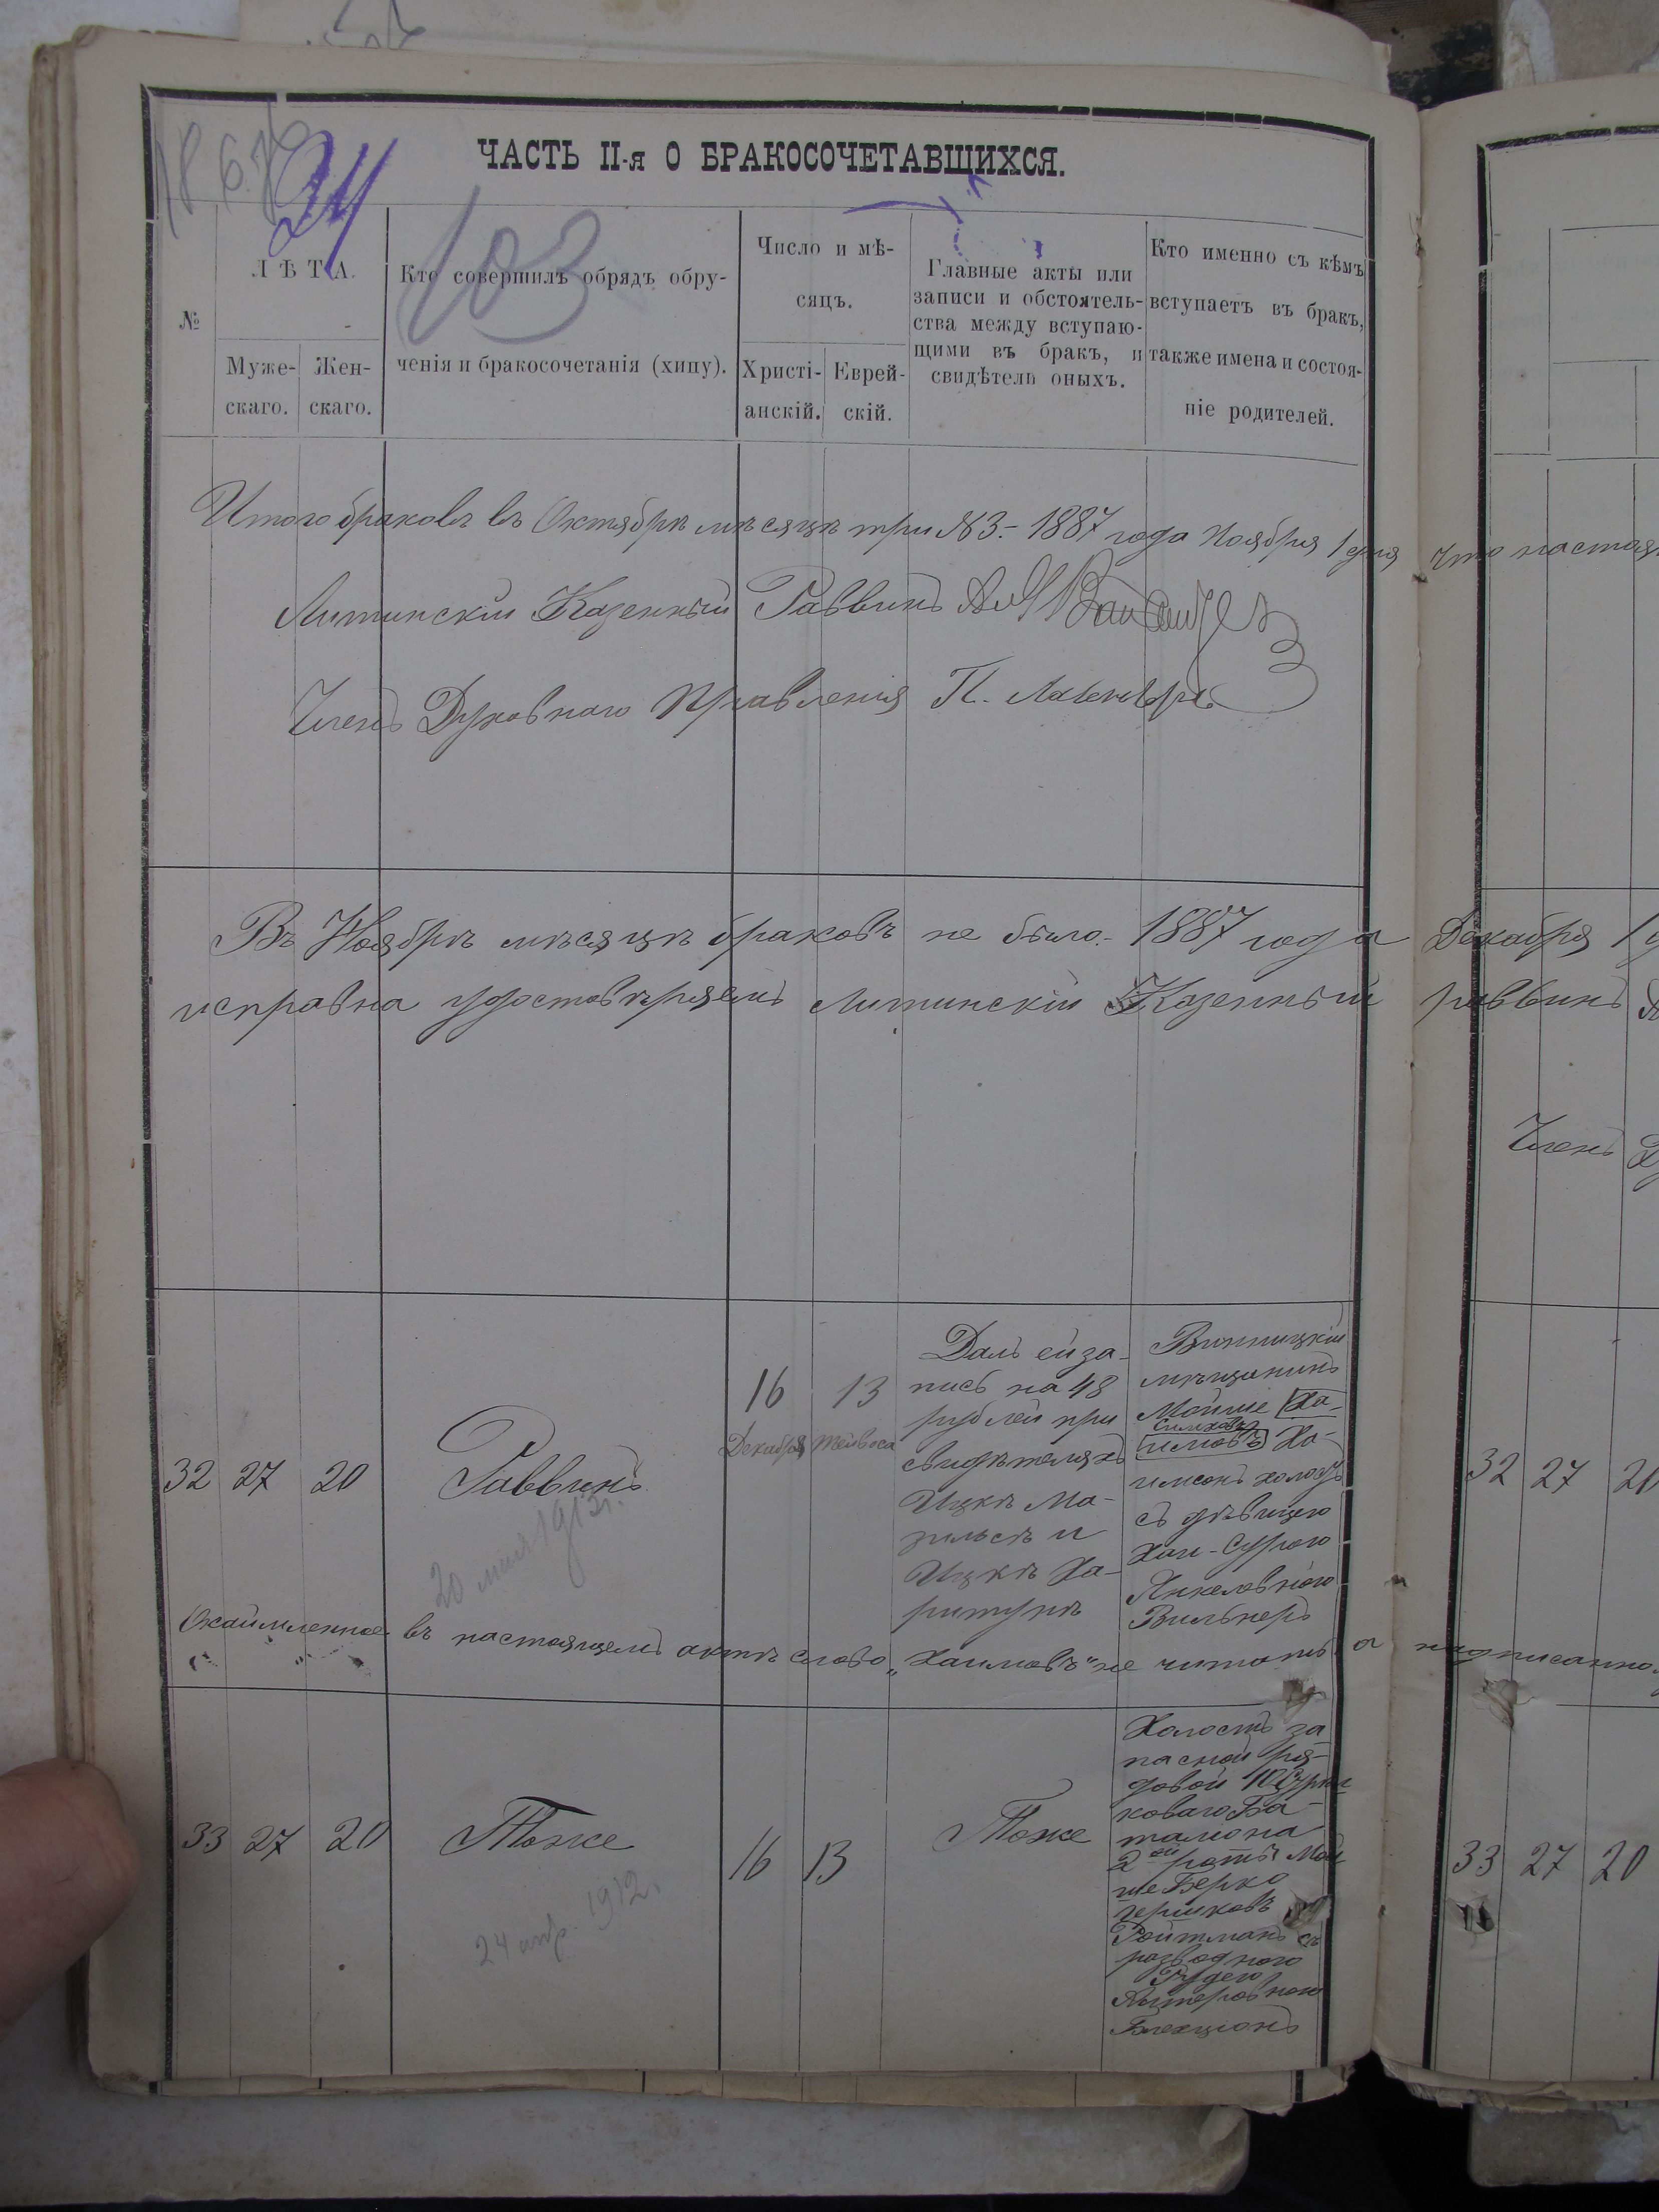 24
103
ЧАСТЬ II-я О БРАКОСОЧЕТАВШИХСЯ.
№
ЛѢТА.
Муже-
скаго.
Жен-
скаго.
Кто совершилъ обрядъ обру-
ченія и бракосочетанія (хипу).
Число и мѣ-
сяцъ.
Христі-
анскій.
Еврей-
скій.
Главные акты или
записи и обстоятель-
ства между вступаю-
щими въ бракъ, и
свидѣтели оныхъ.
Кто именно съ кѣмъ
вступаетъ въ бракъ,
также имена и состоя-
ніе родителей.
Итого браковъ въ Октябрѣ мѣсяцѣ три №3.- 1887 года Ноября 1 дня что настоя
Литинскій Казенный Раввинъ
Членъ Духовнаго Правленія П.
Въ Ноябрѣ мѣсяцѣ браковъ не было.- 1887 года Декабря 1
исправна удостовѣряемъ Литинскій Казенный раввинъ
Членъ
32 27 20
Раввинъ
20 мая 1913г.
16 13
Декабря Тейвоса
Далъ ей за-
пись на 48
рублей при
свидѣтеляхъ
Ицкѣ Ма-
зильсѣ и
Ицкѣ Ха-
ритунѣ
Винницкій
мѣщанинъ
Мойше Ха-
Симховъ
имовъ Ха-
имсонъ холостъ
съ дѣвицею
Хаи-Сурою
Янкелевною
Вильнеръ
32 27 20
Окаймленное въ настоящемъ актѣ слово „Хаимовъ" не читать а надписанно
33 27 20
Тоже
24 апр. 1912г.
16 13
Тоже
Холостъ за
пасной ря-
довой
коваго Ба-
таліона
2ой роты Мой
ше Берко
Гершковъ
Ройтманъ съ
разводною
Альтеровною
33 27 20